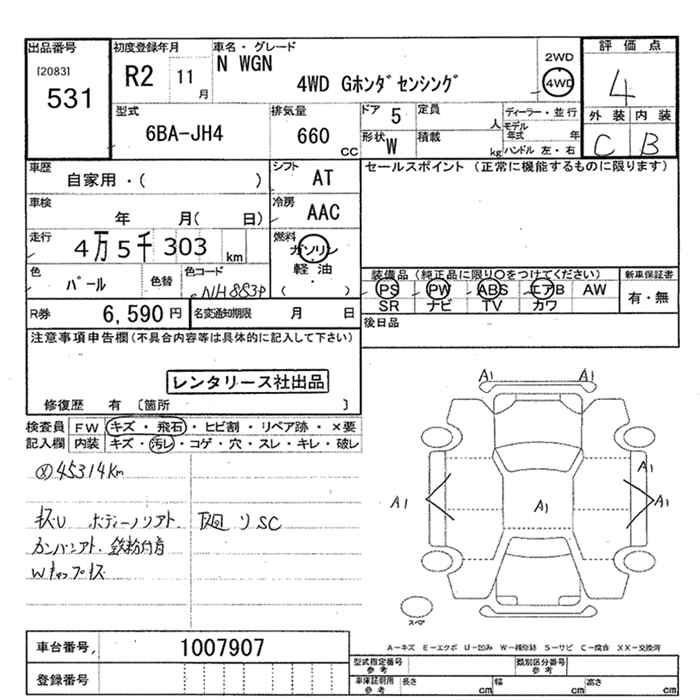 出品番号 初度登録年月 車名・グレード 2WD 評価点
[2083] R2 11月 N WGN 4WD 4
531 4WD Gホンダセンシング
型式 排気量 ドア 5 定員 人 ディーラー・並行 外装 内装
6BA-JH4 660 cc 形状 W 積載 kg モデル年式 年 C B
ハンドル 左・右
車歴 シフト セールスポイント (正常に機能するものに限ります)
自家用・( ) AT
車検 年 月( 日) 冷房 AAC
走行 4万5千303 km 燃料 ガソリン
軽油
・
( )
色 パール 色替 色コード NH883P
装備品 (純正品に限り○をつけてください) 新車保証書
PS PW ABS エアB AW 有・無
SR ナビ TV カワ
R券 6,590円 名変通知期限 月 日 後日品
注意事項申告欄(不具合内容等は具体的に記入して下さい)
レンタリース社出品
修復歴 有 〔箇所 〕
検査員 FW キズ・飛石・ヒビ割・リペア跡・×要
記入欄 内装 キズ・汚レ・コゲ・穴・スレ・キレ・破レ
45314km
A1 A1
A1 A1 A1 A1
スペア
車台番号 1007907
登録番号
A-キズ E-エクボ U-凹み W-補修跡 S-サビ C-腐食 XX-交換済
型式指定番号 参考 類別区分番号 参考
車庫証明用 参考 長さ cm 幅 cm 高さ cm